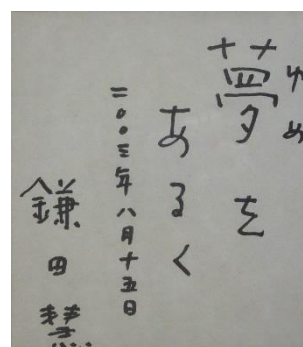 夢を
ゆめ
あるく
二〇〇三年八月十五日
鎌田